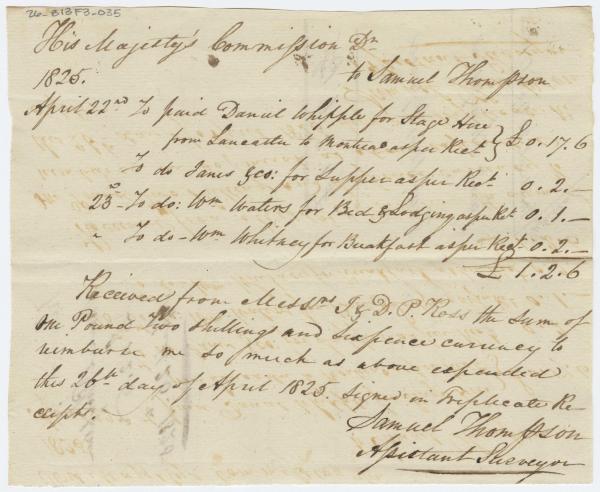 26-B13F3-035
His Majesty's Commission Dr
1825. to Samuel Thompson
April 22nd To paid Daniel Whipple for Stage Hire
from Lancaster to Montreal as per Rect } £0.17.6
To do Janes &co: for Supper as per Rect 0.2.—
23 - To do: Wm Waters for Bed & Lodging as per Rt 0.1.—
" To do - Wm Whitney for Breakfast as per Rect 0.2.—
£1.2.6
Received from Messrs J & D. P. Ross the sum of
One Pound Two shillings and Sixpence currency to
reimburse me so much as above expended
this 26th day of April 1825. Signed in Triplicate Re-
ceipts.
Samuel Thompson
Assistant Surveyor